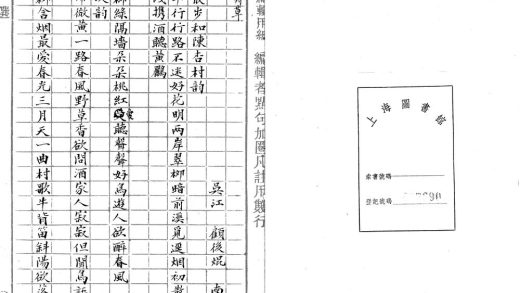 上海圖書館
索書號碼
登記號碼
編輯者點句加圈凡註用製行
吳江 顧後焜 南
散步和陳杏村韵
行行路不迷好花明兩岸翠柳暗前溪覓遇烟初散
攜酒聽黃鸝
韵
柳絲隔墻朵朵桃紅愛聽聲聲好鳥遊人欲醉春風
微黃一路春風野草香欲問酒家人寂寂但聞鳥
柳含烟最愛春光三月天一曲村歌牛背笛斜陽欲落
選